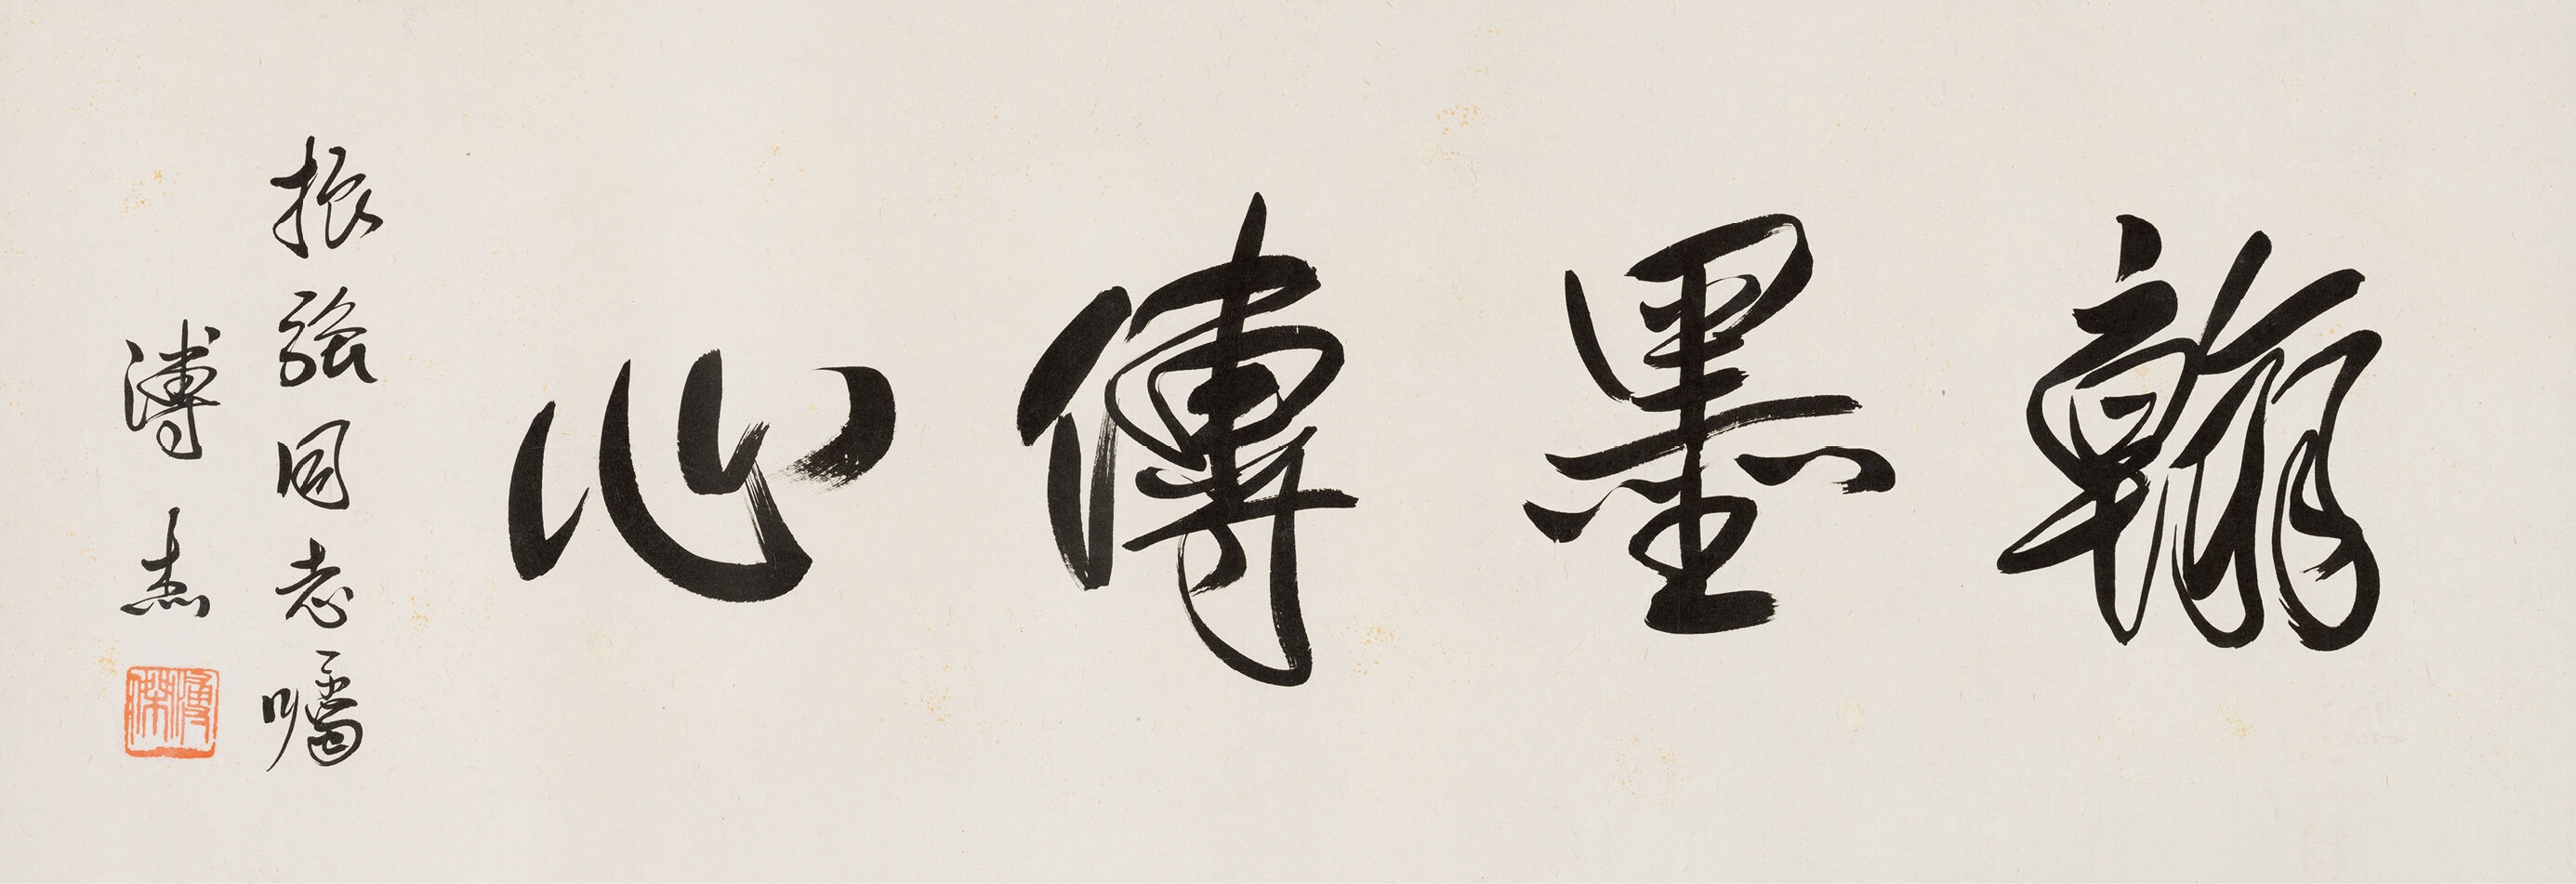 翰墨傳心
振強同志囑
溥杰
溥傑